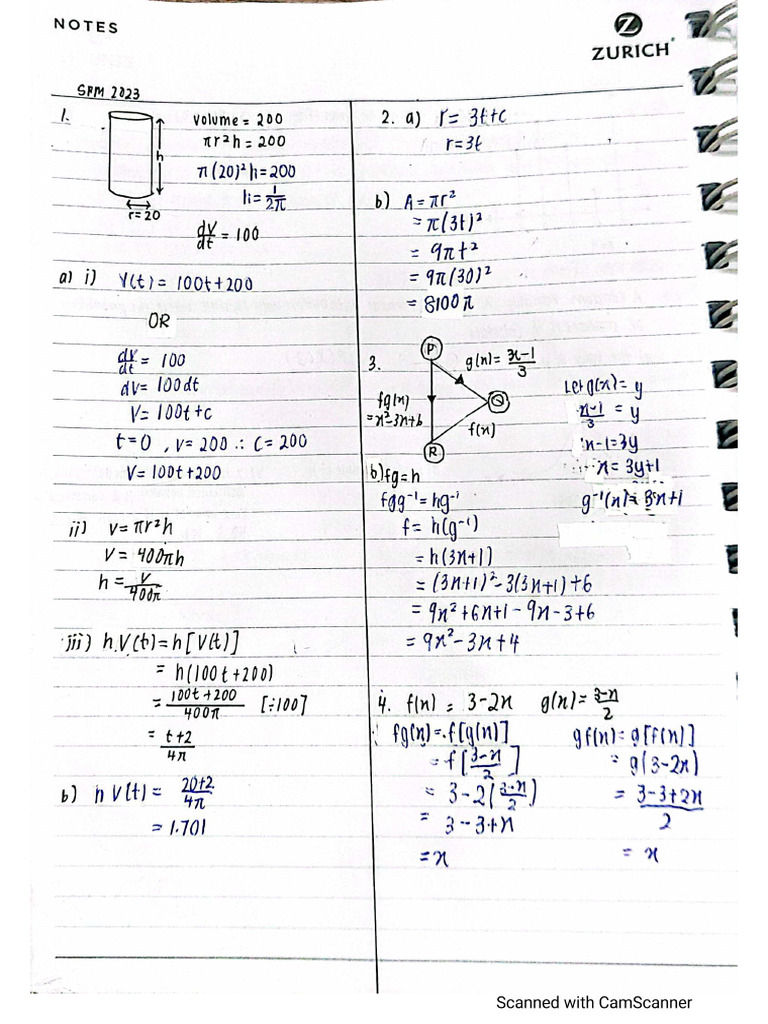 NOTES
ZURICH
SPM 2023
1.
h
r=20
volume = 200
πr²h = 200
π(20)²h=200
h = 1/2π
dV/dt = 100
a) i) V(t) = 100t+200
OR
dV/dt = 100
dV = 100dt
V = 100t+c
t=0, v=200 ∴ C=200
V = 100t+200
ii) V=πr²h
V = 400πh
h = V/400π
iii) h.V(t)=h[V(t)]
= h(100t+200)
= 100t+200/400π [÷100]
= t+2/4π
b) h V(t) = 20+2/4π
= 1.701
2. a) r = 3t+c
r=3t
b) A = πr²
= π(3t)²
= 9πt²
= 9π(30)²
= 8100π
3.
P
g(x) = 3x-1/3
fg(x)
= x²-3x+6
Q
f(x)
R
Let g(x) = y
x-1/3 = y
x-1=3y
x = 3y+1
g⁻¹(x) = 3x+1
b) fg=h
fgg⁻¹=hg⁻¹
f = h(g⁻¹)
= h(3x+1)
= (3x+1)²-3(3x+1)+6
= 9x²+6x+1-9x-3+6
= 9x²-3x+4
4. f(x) = 3-2x g(x) = 3-x/2
fg(x) = f[g(x)]
= f[3-x/2]
= 3-2(3-x/2)
= 3-3+x
= x
gf(x) = g[f(x)]
= g(3-2x)
= 3-3+2x/2
= x
Scanned with CamScanner